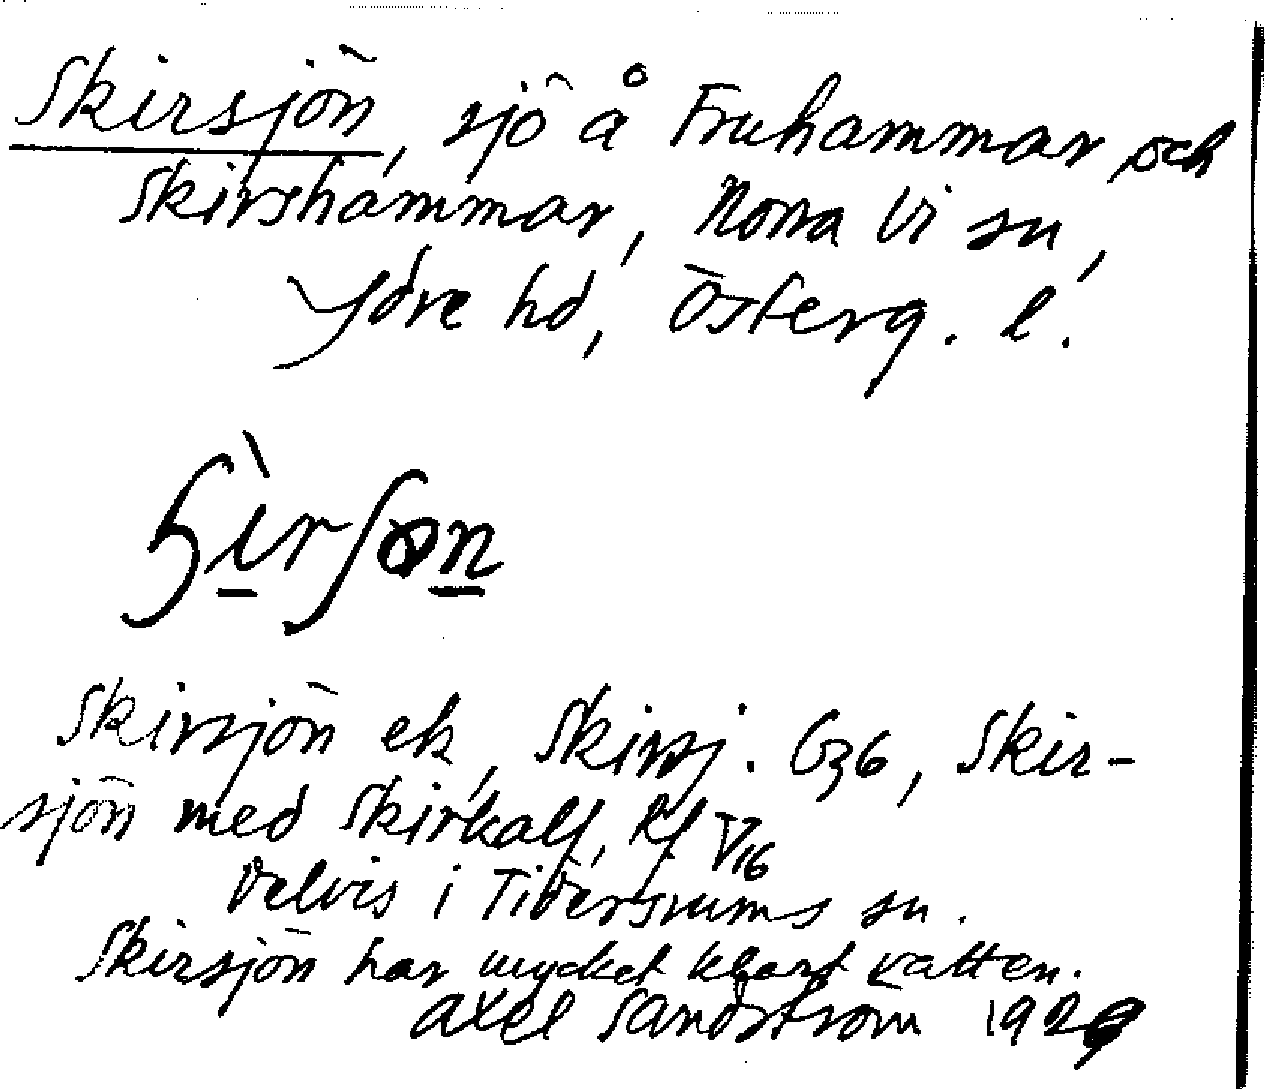 Skirsjön, sjö å Fruhammar och
Skirshammar, Norra Vi sn,
Ydre hd, Österg. l.
Skirsjön ek, Skirsj. G36, Skir-
sjön med Skirkalf, Rf V16
Delvis i Tidersrums sn.
Skirsjön har mycket klart vatten.
Axel Sandström 1929